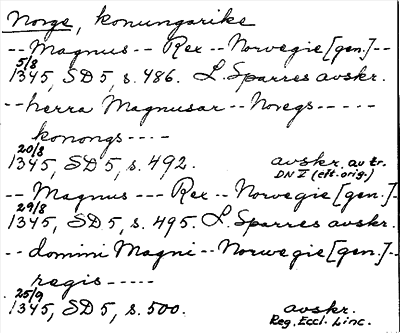 Norge, konungarike
-- Magnus -- Rex -- Norwegie [gen.] --
5/8
1345, SD 5, s. 486. L. Sparres avskr.
-- herra Magnusar -- Noregs -----
konongs ----
20/8
1345, SD 5, s. 492. avskr. av tr.
DN I (eft. orig.)
-- Magnus --- Rex -- Norwegie [gen.] --
29/8
1345, SD 5, s. 495. L. Sparres avskr.
-- domini Magni -- Norwegie [gen.] --
regis -----
25/9
1345, SD 5, s. 500. avskr.
Reg. Eccl. Linc.